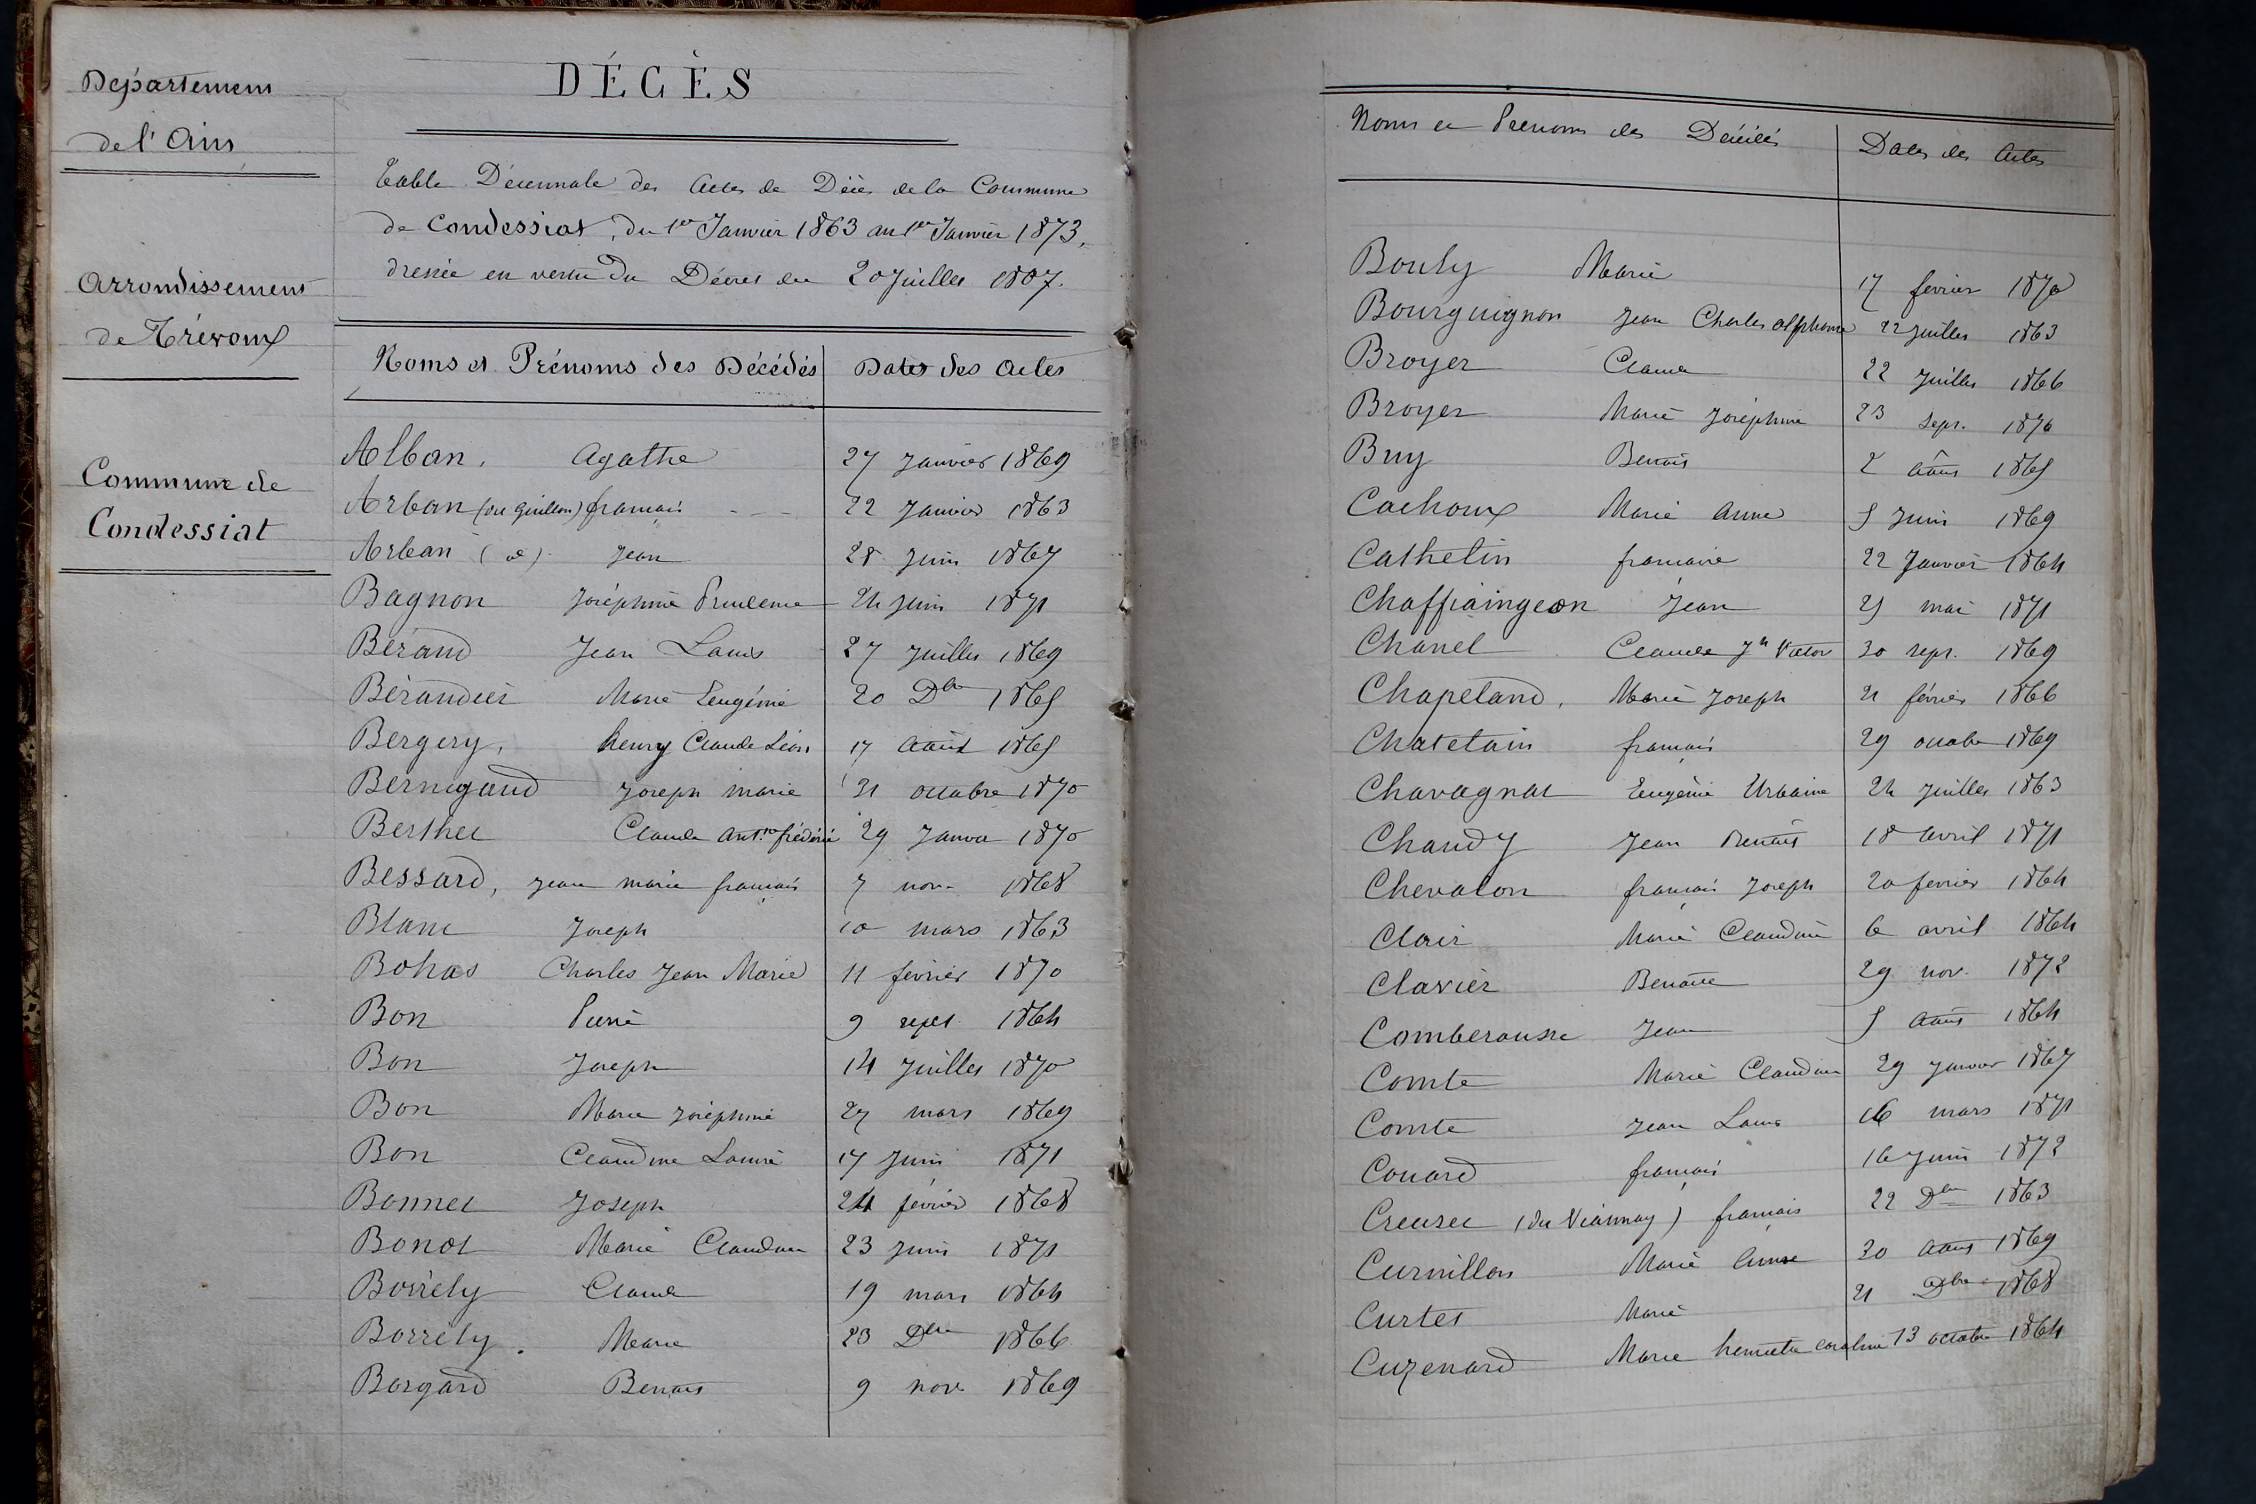 Département
de l'Ain
Arrondissement
de Trévoux
Commune de
Condessiat
DÉCÈS
Table Décennale des Actes de Décès de la Commune
de Condessiat, du 1er Janvier 1863 au 1er Janvier 1873,
dressée en vertu du Décret du 20 Juillet 1807.
Noms et Prénoms des Décédés Dates des Actes
Alban, Agathe 27 Janvier 1869
Arban (du Guillon) françois 22 Janvier 1863
Arban (  ) Jean 28 Juin 1867
Bagnon Joséphine Prudence 24 Juin 1871
Béraud Jean Louis 27 Juillet 1869
Béraudier Marie Eugénie 20 Dbre 1865
Bergery, henry Claude Léon 17 Août 1865
Bernigaud Joseph marie 31 octobre 1870
Berthet Claude Ant.ne frédéric 29 Janvier 1870
Bessard, Jean marie françois 7 nov. 1868
Blanc Joseph 10 mars 1863
Bohas Charles Jean Marie 11 février 1870
Bon Pierre 9 sept. 1864
Bon Joseph 14 Juillet 1870
Bon Marie Joséphine 27 mars 1869
Bon Claudine Louise 17 Juin 1871
Bonnet Joseph 24 février 1868
Bonot Marie Claudine 23 Juin 1871
Borrély Claude 19 mars 1864
Borrély. Marie 23 Dbre 1866
Borgard Benoit 9 nov 1869
Noms et Prénoms des Décédés Dates des Actes
Bouly Marie 17 février 1870
Bourguignon Jean Charles alphonse 22 Juillet 1863
Broyer Claude 22 Juillet 1866
Broyer Marie Joséphine 23 Sept. 1870
Buy Benoit 2 août 1865
Cachoux Marie Anne 5 Juin 1869
Cathelin françoise 22 Janvier 1864
Chaffraingeon Jean 25 mai 1871
Chanel Claude Jh Victor 30 sept. 1869
Chapeland, Marie Joseph 21 février 1866
Chatelain françois 29 octobre 1869
Chavagnat Eugénie Urbaine 24 Juillet 1863
Chaudy Jean Benoit 18 avril 1871
Chevalon françois Joseph 20 fevrier 1864
Clair Marie Claudine 6 avril 1864
Clavier Benoite 29 nov. 1872
Comberousse Jean 5 août 1864
Comte Marie Claudine 29 Janvier 1867
Comte Jean Louis 16 mars 1871
Couard françois 16 Juin 1872
Creuset (du Viannay) françois 22 Dbre 1863
Curnillon Marie Anne 30 août 1869
Curtet Marie 21 Dbre 1868
Cuzenard Marie henriette caroline 13 octobre 1864